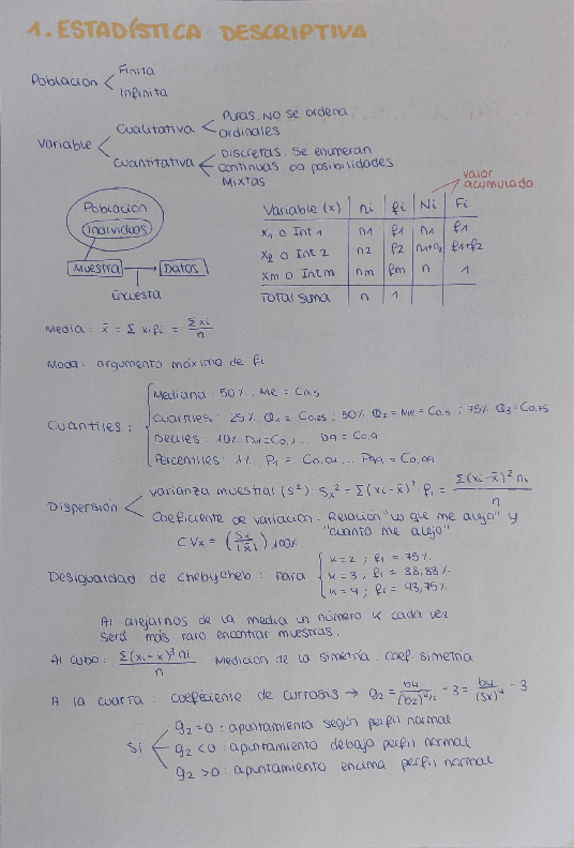 1. ESTADÍSTICA DESCRIPTIVA
Población < Finita
Infinita
Variable < Cualitativa < Puras. No se ordena
Ordinales
Cuantitativa < Discretas. Se enumeran
Continuas. ∞ posibilidades
Mixtas
Población
individuos
Muestra → Datos
Encuesta
valor acumulado
Variable (x) | ni | fi | Ni | Fi
x1 o Int 1 | n1 | f1 | n1 | f1
x2 o Int 2 | n2 | f2 | n1+n2 | f1+f2
xm o Int m | nm | fm | n | 1
Total suma | n | 1
Media: x̄ = Σ xi fi = Σxi / n
Moda: argumento máximo de fi
Cuantiles:
Mediana: 50%. Me = C0,5
Cuartiles: 25% Q1 = C0,25; 50% Q2 = Me = C0,5; 75% Q3 = C0,75
Deciles: 10% D1 = C0,1 ... D9 = C0,9
Percentiles: 1% P1 = C0,01 ... P99 = C0,99
Dispersión < varianza muestral (S²): Sx² = Σ(xi-x̄)²·fi = Σ(xi-x̄)² ni / n
Coeficiente de variación. Relación "lo que me alejo" y
"cuanto me alejo"
CVx = (Sx / |x̄|) 100%
Desigualdad de Chebycheb: para
k=2; fi = 75%
k=3; fi = 88,88%
k=4; fi = 93,75%
Al alejarnos de la media un número k cada vez
será más raro encontrar muestras.
Al cubo: Σ(xi-x̄)³ ni / n Medición de la simetría. Coef. simetría
A la cuarta: coeficiente de curtosis → g2 = b4 / (b2)^4/2 - 3 = b4 / (Sx)⁴ - 3
Si
g2=0: apuntamiento según perfil normal
g2<0: apuntamiento debajo perfil normal
g2>0: apuntamiento encima perfil normal